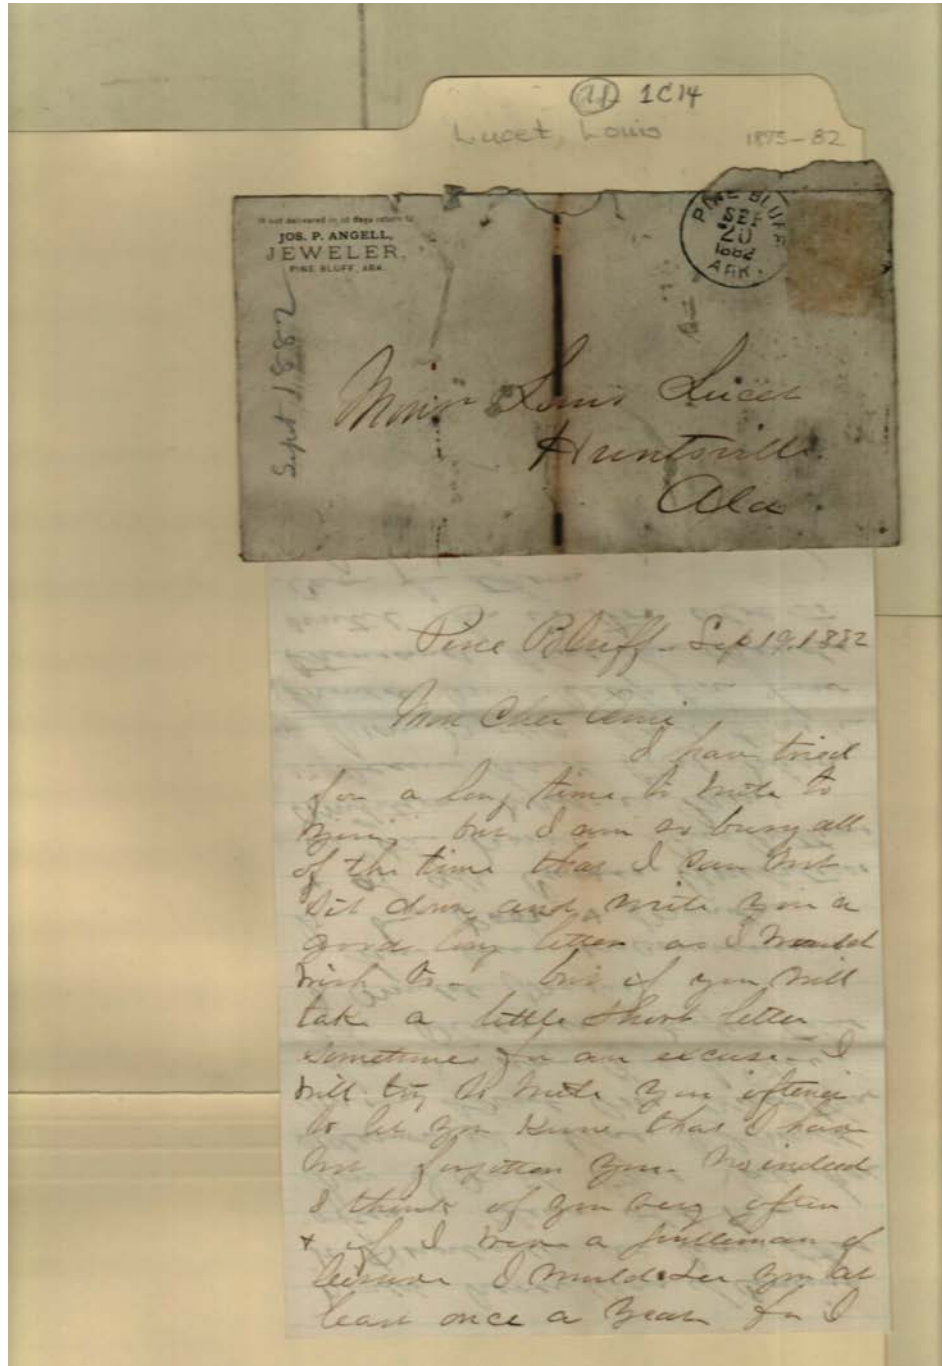 1C14
Lucet, Louis
1875-82
If not delivered in 10 days return to
JOS. P. ANGELL,
JEWELER,
PINE BLUFF, ARK.
PINE BLUFF
SEP
20
1882
ARK.
Sept 1882
Louis Lucet
Huntsville
Ala
Pine Bluff - Sep 19. 1882
Mon Cher Ami
I have tried
for a long time to write to
you, but I am so busy all
of the time that I can not
sit down and write you a
good long letter as I would
wish to - but if you will
take a little short letter
sometime for an excuse - I
will try to write you oftener
to let you know that I have
not forgotten you. No indeed
I think of you very often
+ if I were a gentleman of
leisure I would see you at
least once a year for I